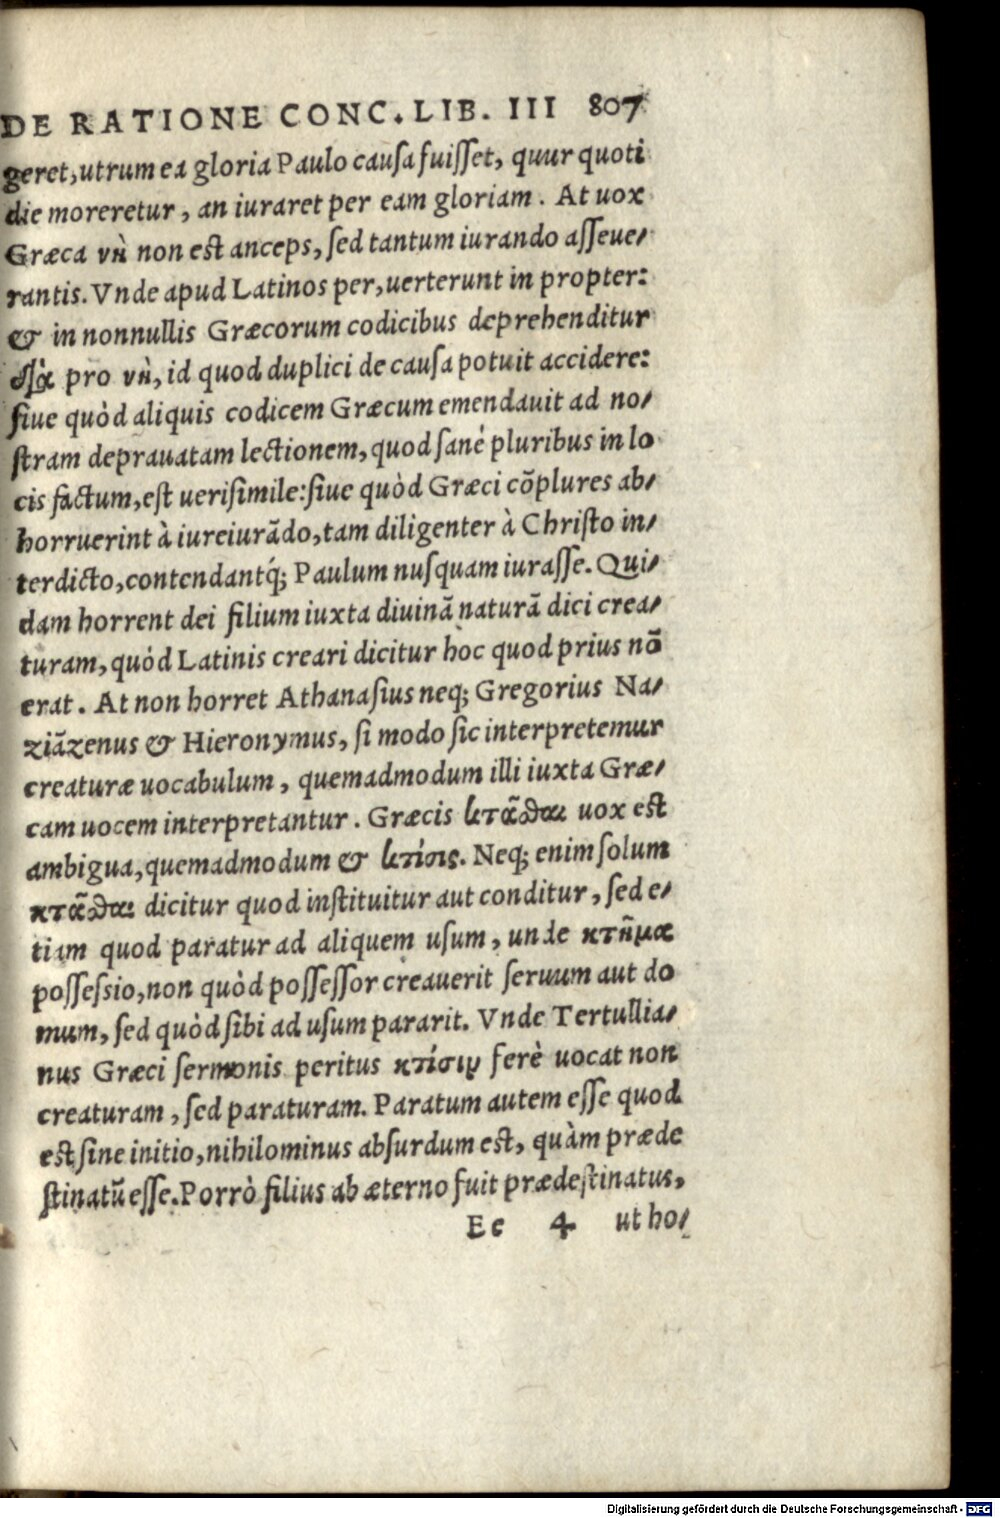 DE RATIONE CONC. LIB. III 807
geret, utrum ea gloria Paulo causa fuisset, quur quoti
die moreretur, an iuraret per eam gloriam. At uox
Græca νὴ non est anceps, sed tantum iurando asseue/
rantis. Vnde apud Latinos per, uerterunt in propter:
& in nonnullis Græcorum codicibus deprehenditur
διὰ pro νὴ, id quod duplici de causa potuit accidere:
siue quòd aliquis codicem Græcum emendauit ad no/
stram deprauatam lectionem, quod sanè pluribus in lo
cis factum, est uerisimile: siue quòd Græci cõplures ab/
horruerint à iureiurãdo, tam diligenter à Christo in/
terdicto, contendantq́; Paulum nusquam iurasse. Qui/
dam horrent dei filium iuxta diuinã naturã dici crea/
turam, quòd Latinis creari dicitur hoc quod prius nõ
erat. At non horret Athanasius neq; Gregorius Na/
ziãzenus & Hieronymus, si modo sic interpretemur
creaturæ uocabulum, quemadmodum illi iuxta Græ/
cam uocem interpretantur. Græcis κτᾶσθαι uox est
ambigua, quemadmodum & κτίσις. Neq; enim solum
κτᾶσθαι dicitur quod instituitur aut conditur, sed e/
tiam quod paratur ad aliquem usum, unde κτῆμα
possessio, non quòd possessor creauerit seruum aut do
mum, sed quòd sibi ad usum pararit. Vnde Tertullia/
nus Græci sermonis peritus κτίσιν ferè uocat non
creaturam, sed paraturam. Paratum autem esse quod
est sine initio, nihilominus absurdum est, quàm præde
stinatũ esse. Porrò filius ab æterno fuit prædestinatus,
Ee 4 ut ho/
Digitalisierung gefördert durch die Deutsche Forschungsgemeinschaft - DFG